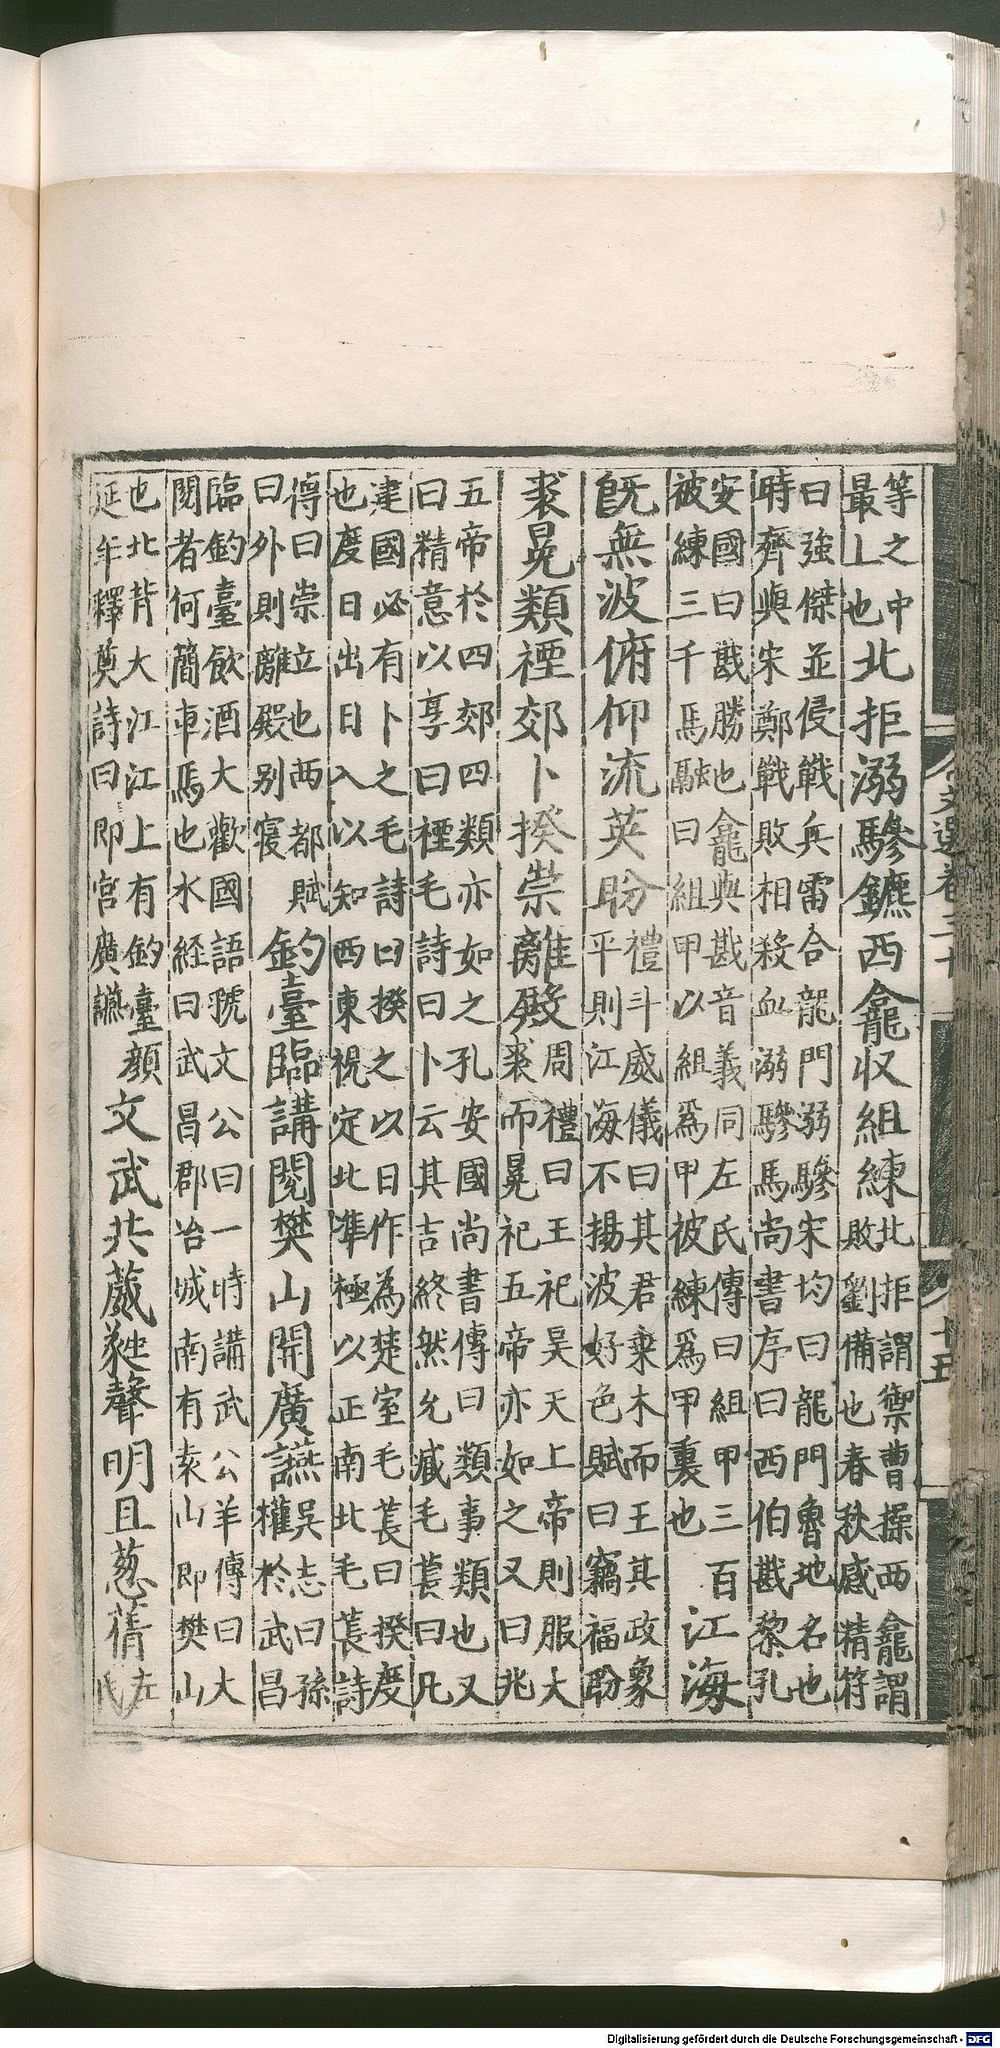 等之中
最上也
北拒溺驂鑣西龕収組練
北拒謂禦曹操西龕謂
敗劉備也春秋感精符
曰強傑並侵戰兵雷合龍門溺驂宋均曰龍門魯地名也
時齊與宋鄭戰敗相殺血溺驂馬尚書序曰西伯戡黎孔
安國曰戡勝也龕與戡音義同左氏傳曰組甲三百
被練三千馬融曰組甲以組爲甲被練爲甲裏也
江海
旣無波俯仰流英盼
禮斗威儀曰其君乗木而王其政象
平則江海不揚波好色賦曰竊福盼
裘冕類禋郊卜揆崇離殿
周禮曰王祀昊天上帝則服大
裘而冕祀五帝亦如之又曰兆
五帝於四郊四類亦如之孔安國尚書傳曰類事類也又
曰精意以享曰禋毛詩曰卜云其吉終然允臧毛萇曰凡
建國必有卜之毛詩曰揆之以日作為楚室毛萇曰揆度
也度日出日入以知西東視定北準極以正南北毛萇詩
傳曰崇立也西都賦
曰外則離殿別寢
釣臺臨講閱樊山開廣讌
吳志曰孫
權於武昌
臨釣臺飲酒大歡國語虢文公曰一時講武公羊傳曰大
閱者何簡車馬也水経曰武昌郡治城南有袁山即樊山
也北背大江江上有釣臺顏
延年釋奠詩曰即宮廣讌
文武共葳蕤聲明且葱蒨
左
氏
文選卷三十
十五
Digitalisierung gefördert durch die Deutsche Forschungsgemeinschaft - DFG